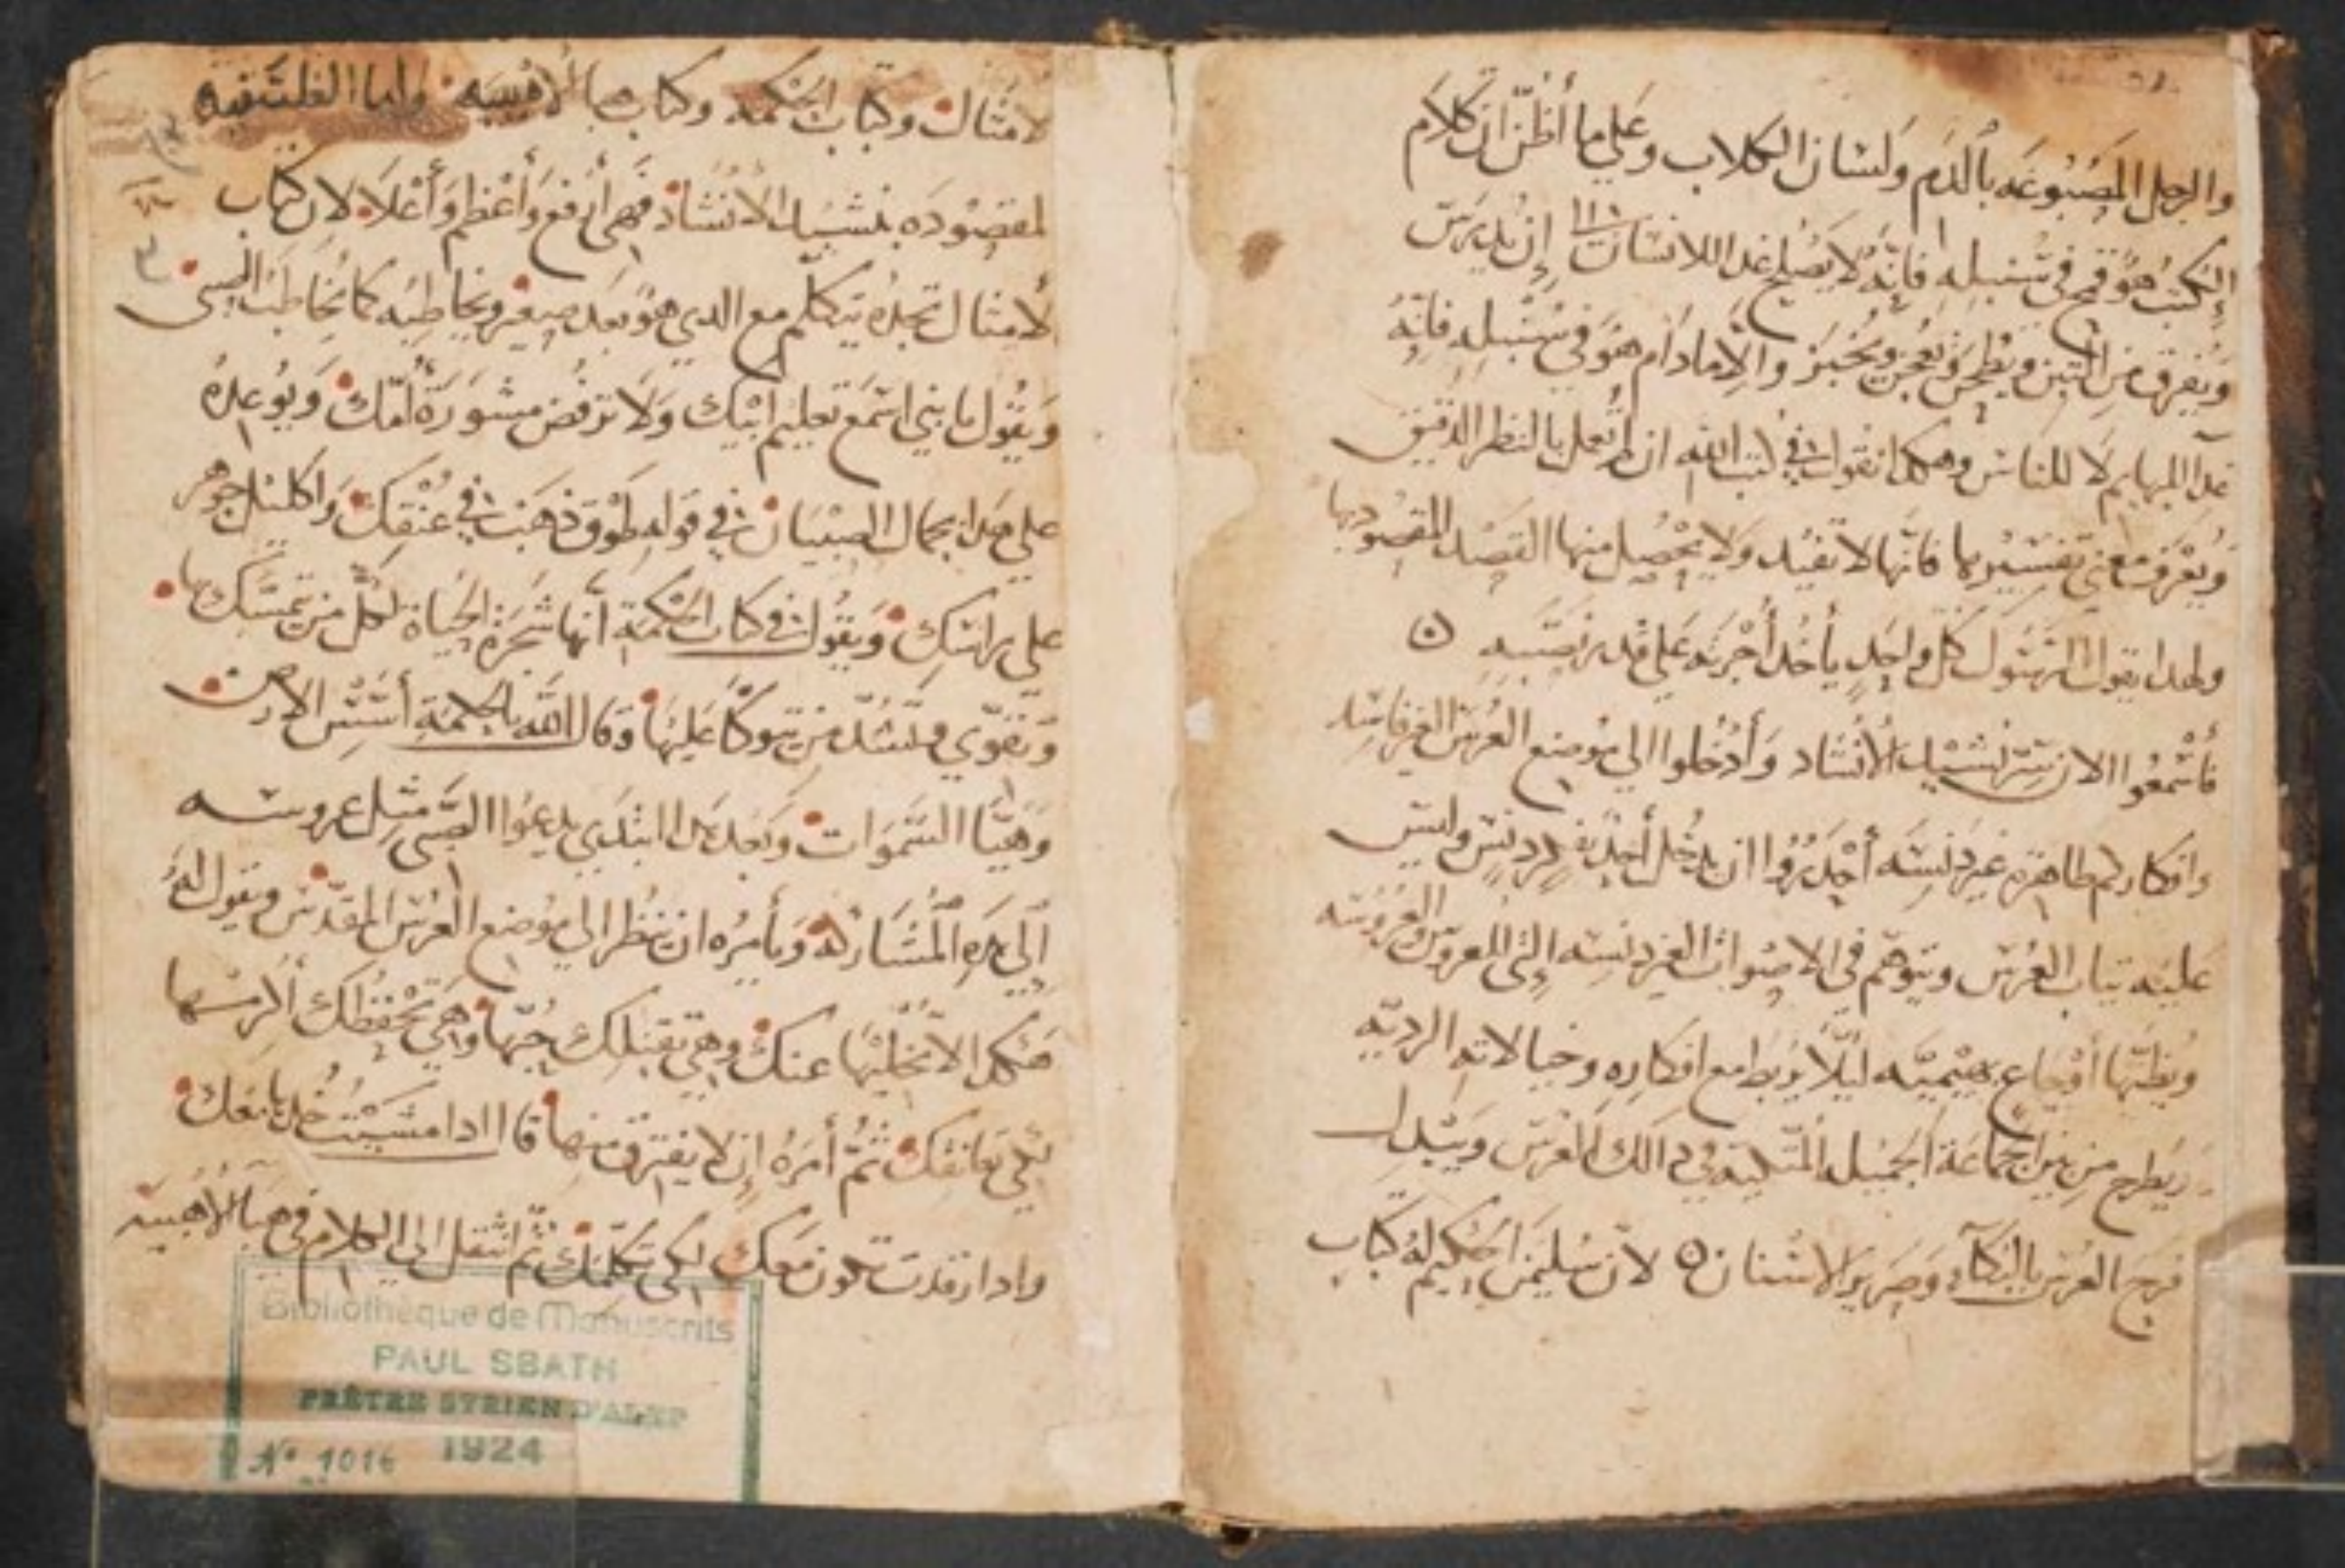 والرجل المصبوغه بالدم ولسان الكلاب وعلى ما أظن ان كلام
الكتب هو قمح في سنبله فانه لا يصلح غدا للانسان الا إن يدرس
ويفرق من التبن ويطحن ويعجن ويخبز والا مادام هو في سنبله فانه
غدا للبهايم لا للناس وهكدا نقول في كتب الله ان لم تعمل بالنظر الدقيق
ويعرف معني تفسيرها فانها لا تفيد ولا يحصل منها القصد المقصود بها
ولهدا يقول الرسول كل واحد يأخد أجرته على قدر نصبه ن
فأسمعوا الان سر نشيد الأنشاد وأدخلوا الي موضع العرس الغير فاسد
وافكاركم طاهره غير دنسه أحدروا ان يدخل أحد دنس وليس
عليه تياب العرس ويتوهم في الاصوات الغير دنسه التي للعروس والعروسه
ويظنها أوجاع بهيميه ليلا يربط مع افكاره وخيالاته الرديه
ويطرح من بين الجماعة الجميله في دالك العرس ويبدل
فرح العرس بالبكآء وصرير الاسنان ٥ لان سليمن الحكيم له كتاب
لامثال وكتاب الحكمه وكتاب هبا الأهبيه وأما الفلسفيه
لمقصوده بنشيد الأنشاد فهي أرفع وأعظم وأعلا لان كتاب
لامثال تجده يتكلم مع الدي هو بعد صغير ويخاطبه كما يخاطب الصبي
ويقول يا بني اسمع تعليم ابيك ولا ترفض مشورة أمك ويوعده
على هدا بجمال الصبيان في قوله طوق دهب في عنقك واكليل جوهر
علي راسك ويقول في كتاب الحكمة أنها شجرة الحياة لكل من تمسك بها
وتقوي وتشد من يتوكأ عليها وقال الله بالحكمة أسس الارض
وهيا السموات وبعد هدا ابتدي يدعوا الصبي مثل عروسه
إلي هده المشاركه ويأمره ان ينظر الي موضع العرس المقدس ويقول له
هكدا لا تخليها عنك وهي تقبلك حبها وهي تحفظك ألزمها
لكي تعانقك ثم أمره إن لا يفترق منها قال ادا مشيت خدها معك
وادا رقدت تكون معك لكي تكلمك ثم انتقل الي الكلام في هبا الأهبيه
Bibliothèque de Manuscrits
PAUL SBATH
PRÊTRE SYRIEN D'ALEP
1924
No 1016